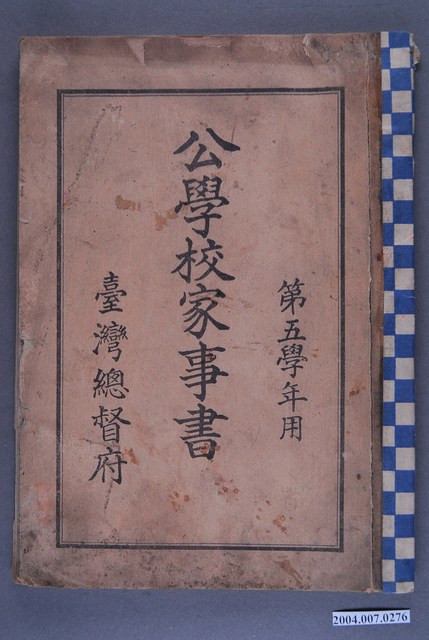 第五學年用
公學校家事書
臺灣總督府
2004.007.0276